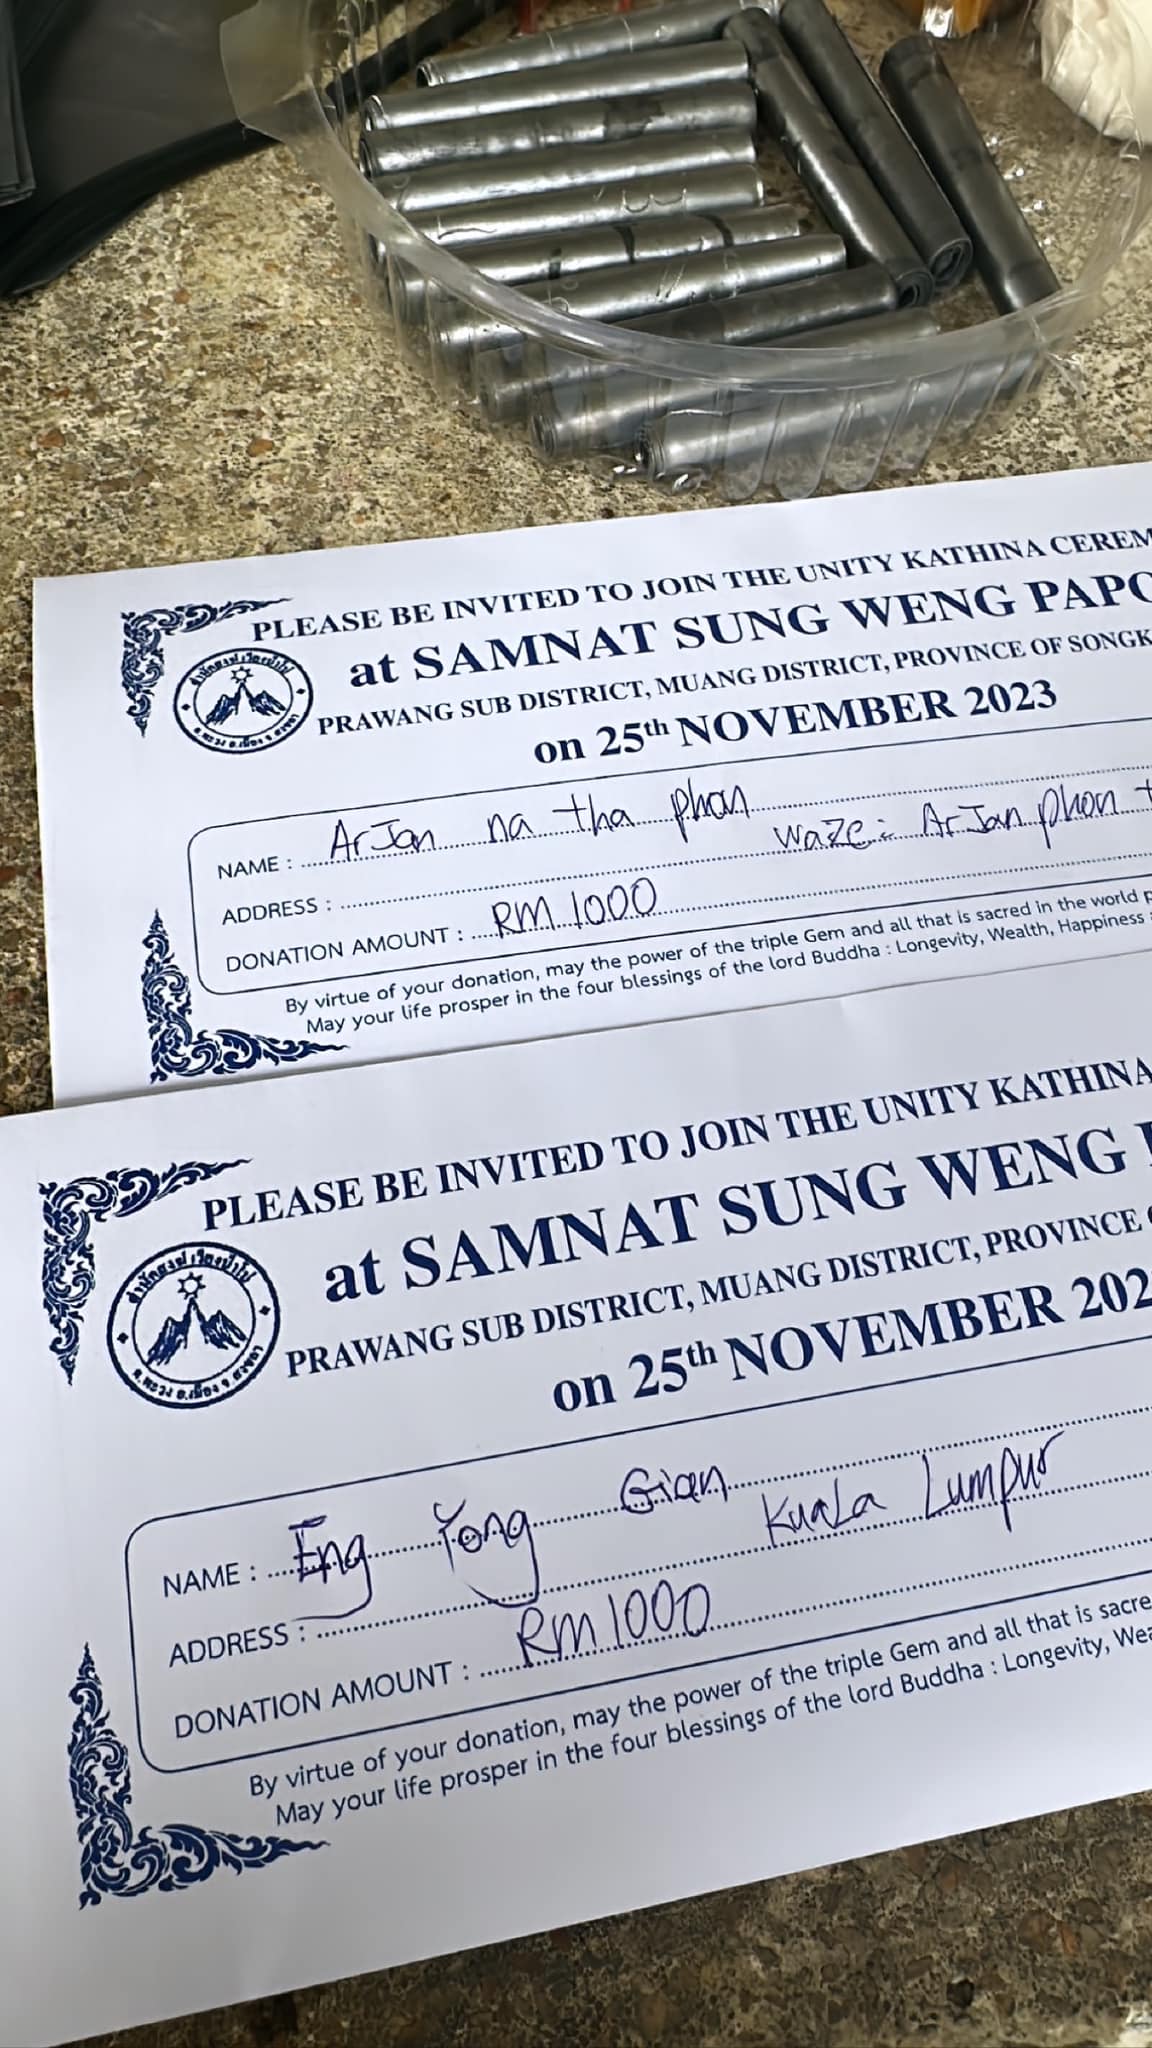 PLEASE BE INVITED TO JOIN THE UNITY KATHINA CEREM
at SAMNAT SUNG WENG PAPO
สำนักสงฆ์เวิ้งป่าโป
PRAWANG SUB DISTRICT, MUANG DISTRICT, PROVINCE OF SONGK
on 25th NOVEMBER 2023
NAME : ArJan na tha phan
ADDRESS : Waze : ArJan phon t
DONATION AMOUNT : RM 1000
By virtue of your donation, may the power of the triple Gem and all that is sacred in the world p
May your life prosper in the four blessings of the lord Buddha : Longevity, Wealth, Happiness
PLEASE BE INVITED TO JOIN THE UNITY KATHINA
at SAMNAT SUNG WENG
PRAWANG SUB DISTRICT, MUANG DISTRICT, PROVINCE
on 25th NOVEMBER 202
NAME : Eng Yong Gian
ADDRESS : Kuala Lumpur
DONATION AMOUNT : RM 1000
By virtue of your donation, may the power of the triple Gem and all that is sacre
May your life prosper in the four blessings of the lord Buddha : Longevity, Wea